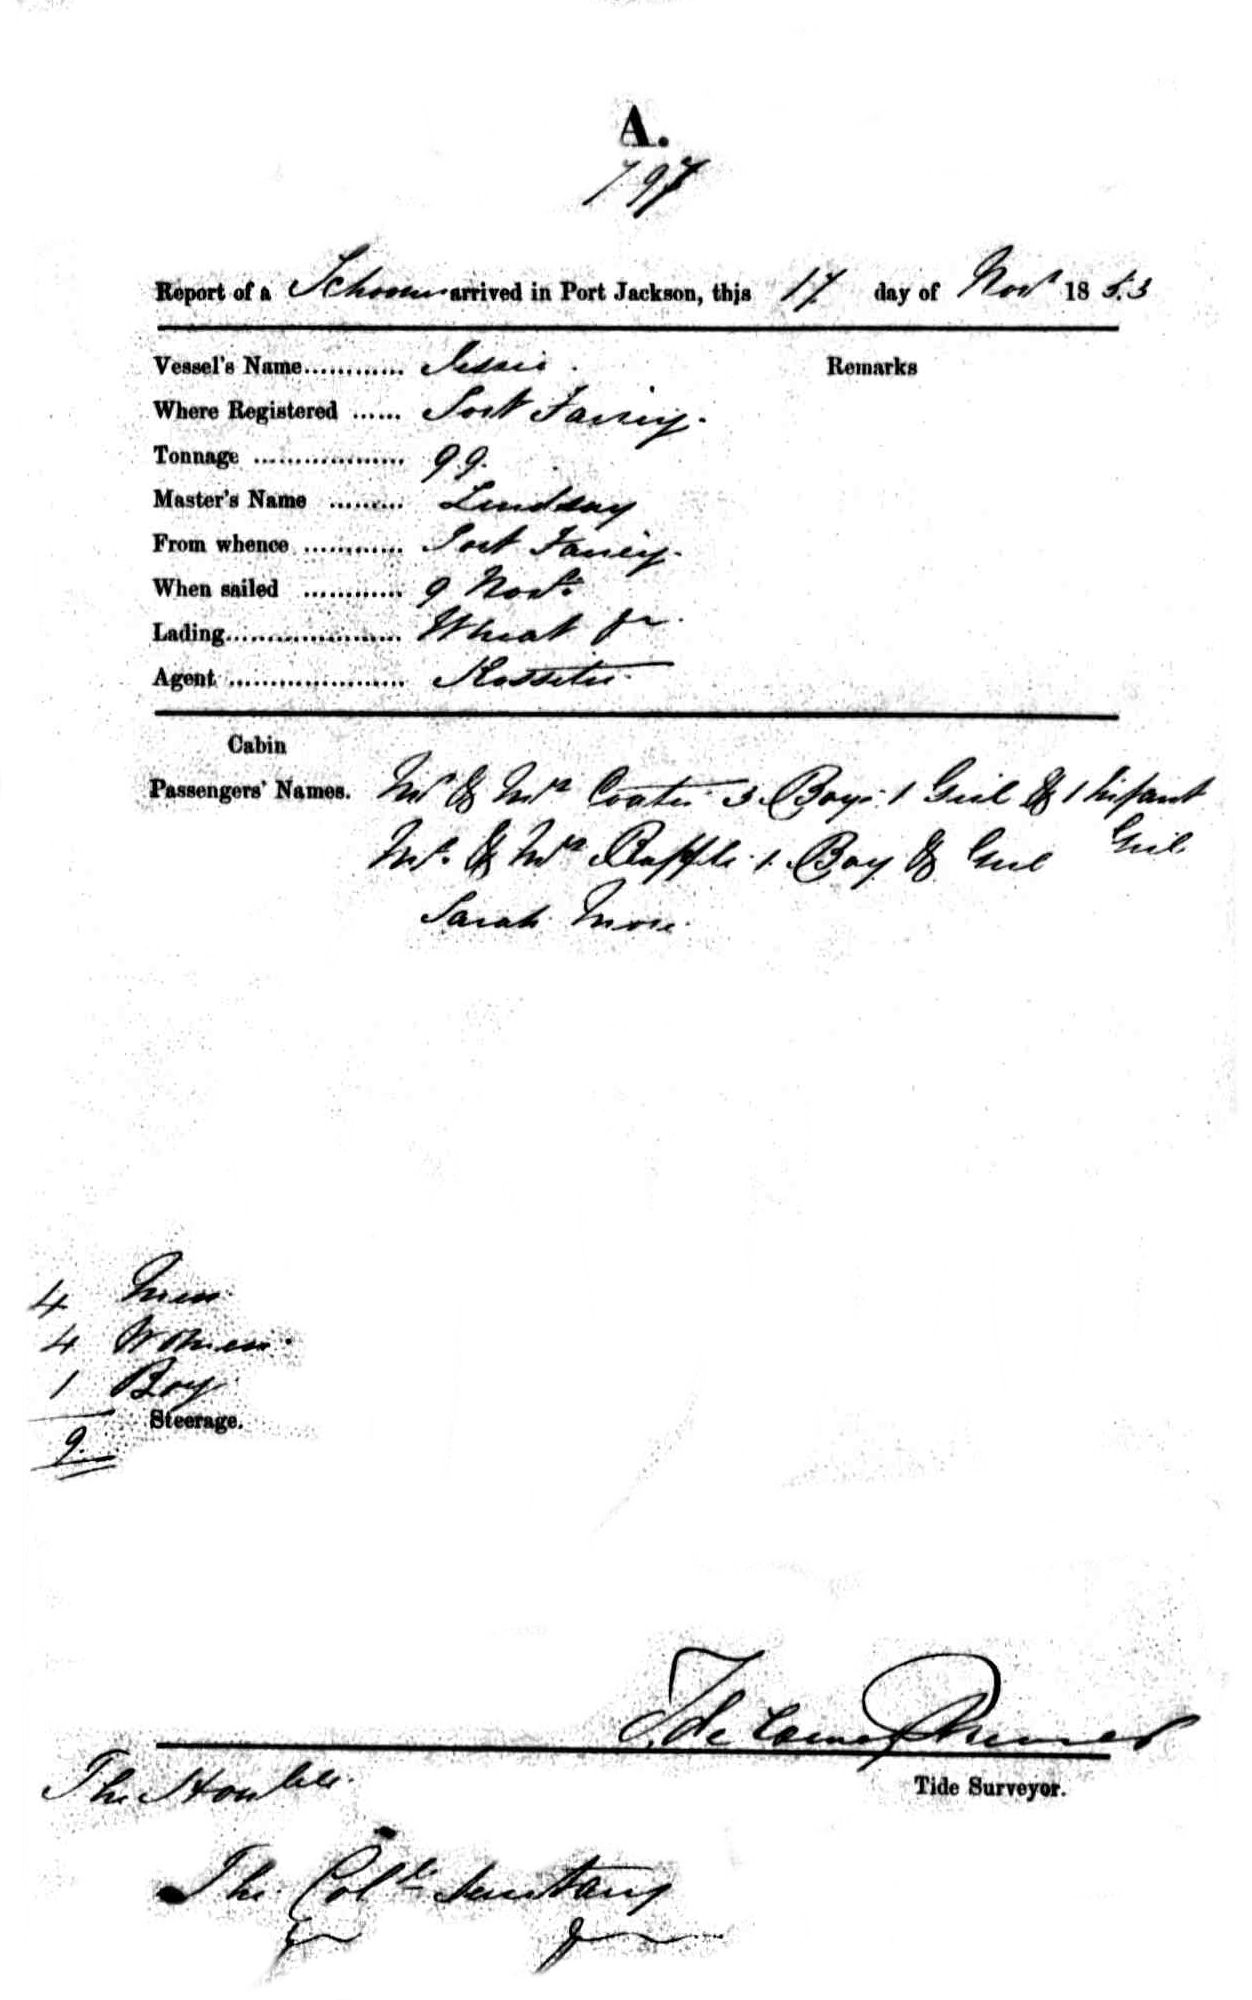 A.
797
Report of a Schooner arrived in Port Jackson, this 17 day of Novr 1853
Vessel's Name............ Jessie. Remarks
Where Registered ...... Port Fairy.
Tonnage .................. 99.
Master's Name ......... Lindsay
From whence ............ Port Fairy.
When sailed ............ 9 Novr.
Lading..................... Wheat &c.
Agent ..................... Rossiter
Cabin
Passengers' Names. Mr & Mrs Coates 3 Boys 1 Girl & 1 Infant
Girl
Mr. & Mrs 1 Boy & Girl
Sarah More
4 Men
4 Women.
1 Boy
Steerage.
9.
Tide Surveyor.
The Honble.
The Coll. Secretary
&c &c